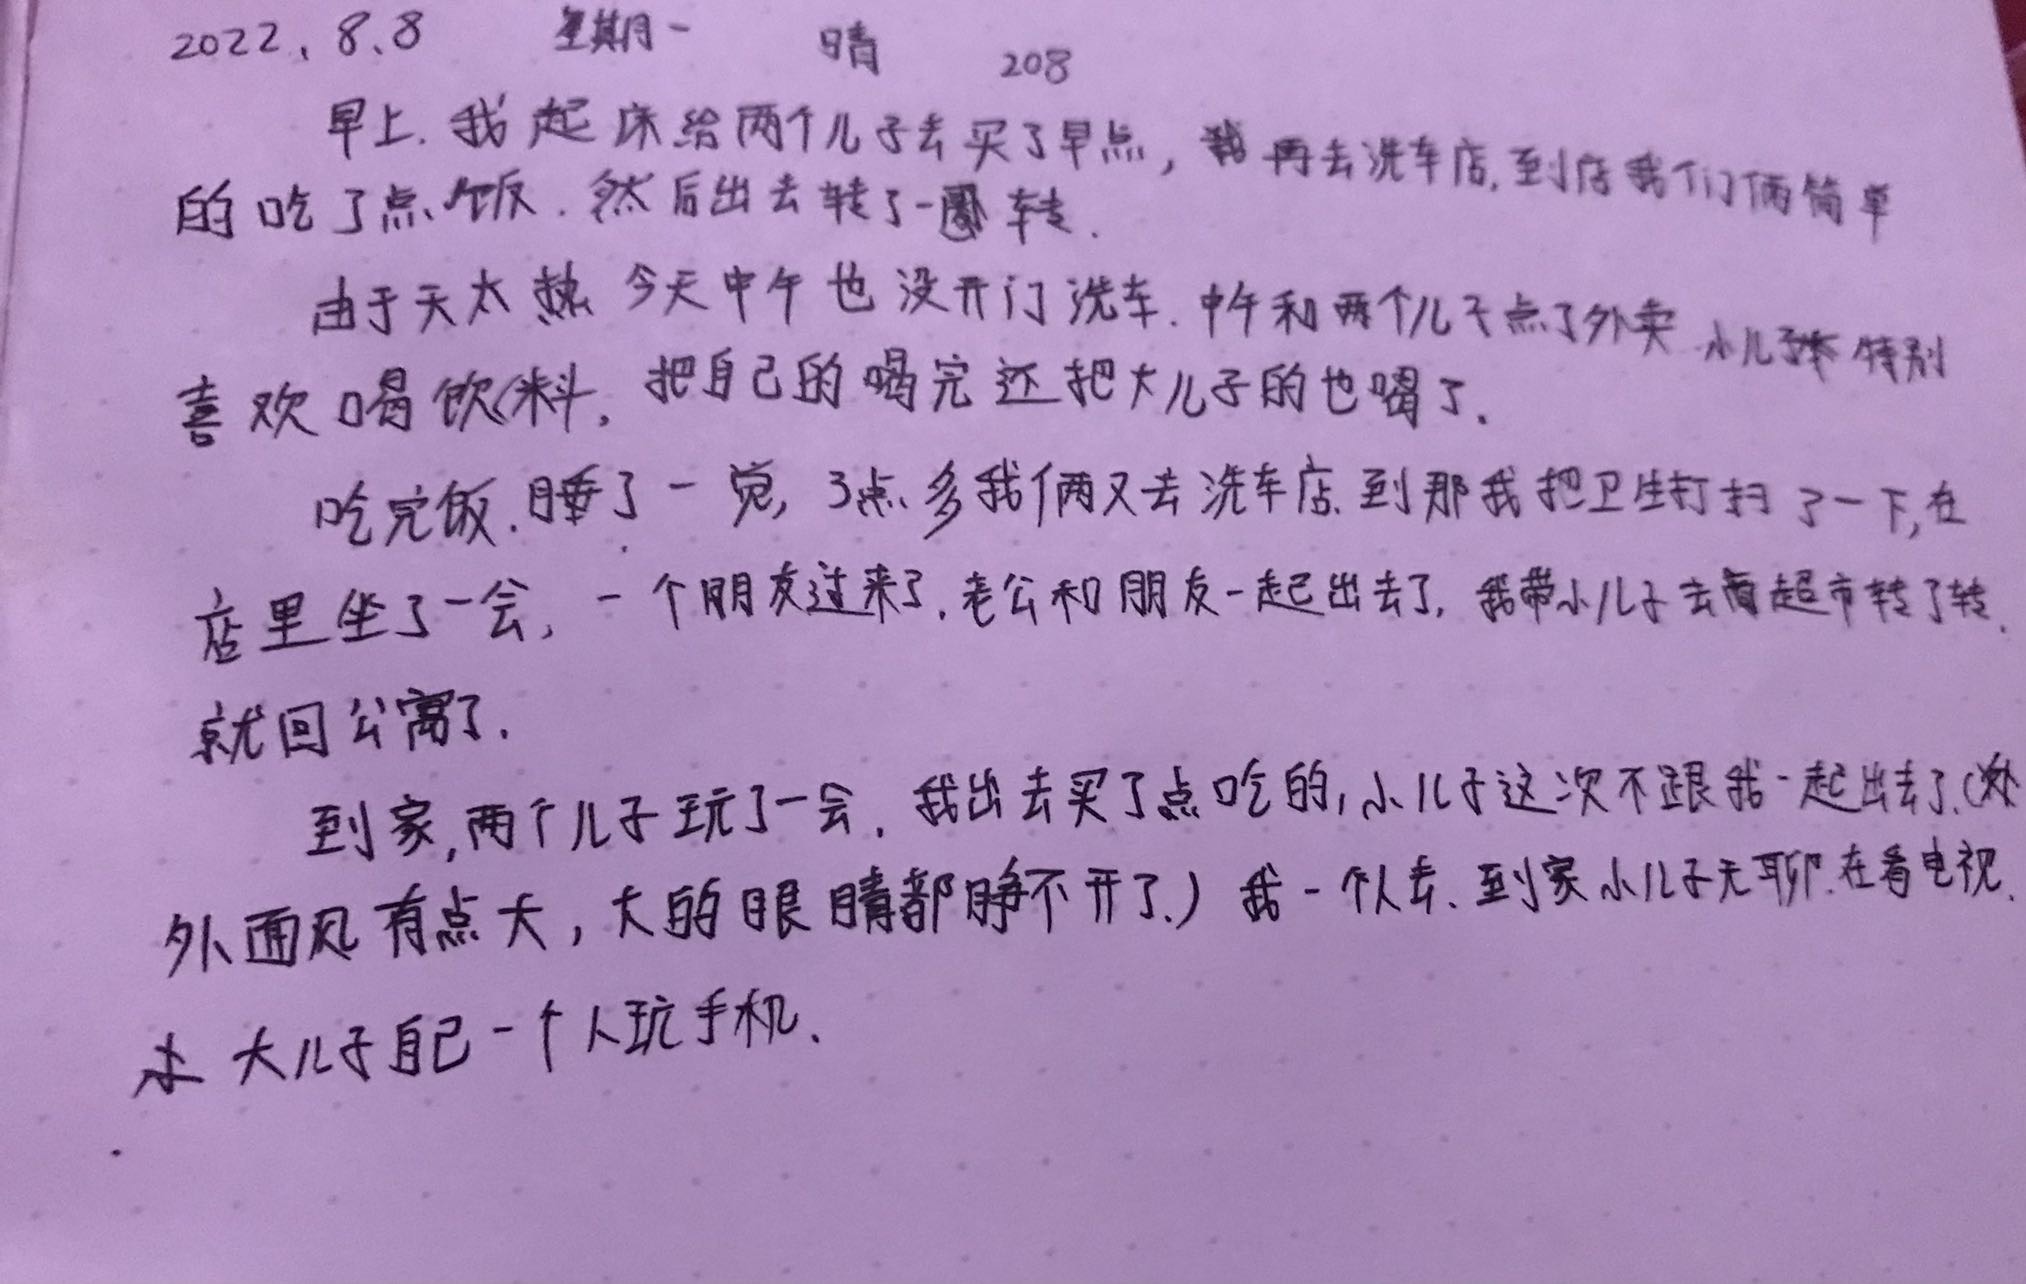 2022、8、8 星期一 晴 208
早上.我起床给两个儿子去买了早点,我再去洗车店,到店我们俩简单
的吃了点饭.然后出去转了一圈转.
由于天太热 今天中午也没开门洗车.中午和两个儿子点了外卖 小儿子特别
喜欢喝饮料,把自己的喝完还把大儿子的也喝了.
吃完饭.睡了一觉,3点多我俩又去洗车店.到那我把卫生打扫了一下,在
店里坐了一会,一个朋友过来了.老公和朋友一起出去了,我带小儿子去超市转了转.
就回公寓了.
到家,两个儿子玩了一会.我出去买了点吃的,小儿子这次不跟我一起出去了.(
外面风有点大,大的眼睛都睁不开了.)我一个人去.到家小儿子无聊.在看电视.
大儿子自己一个人玩手机.